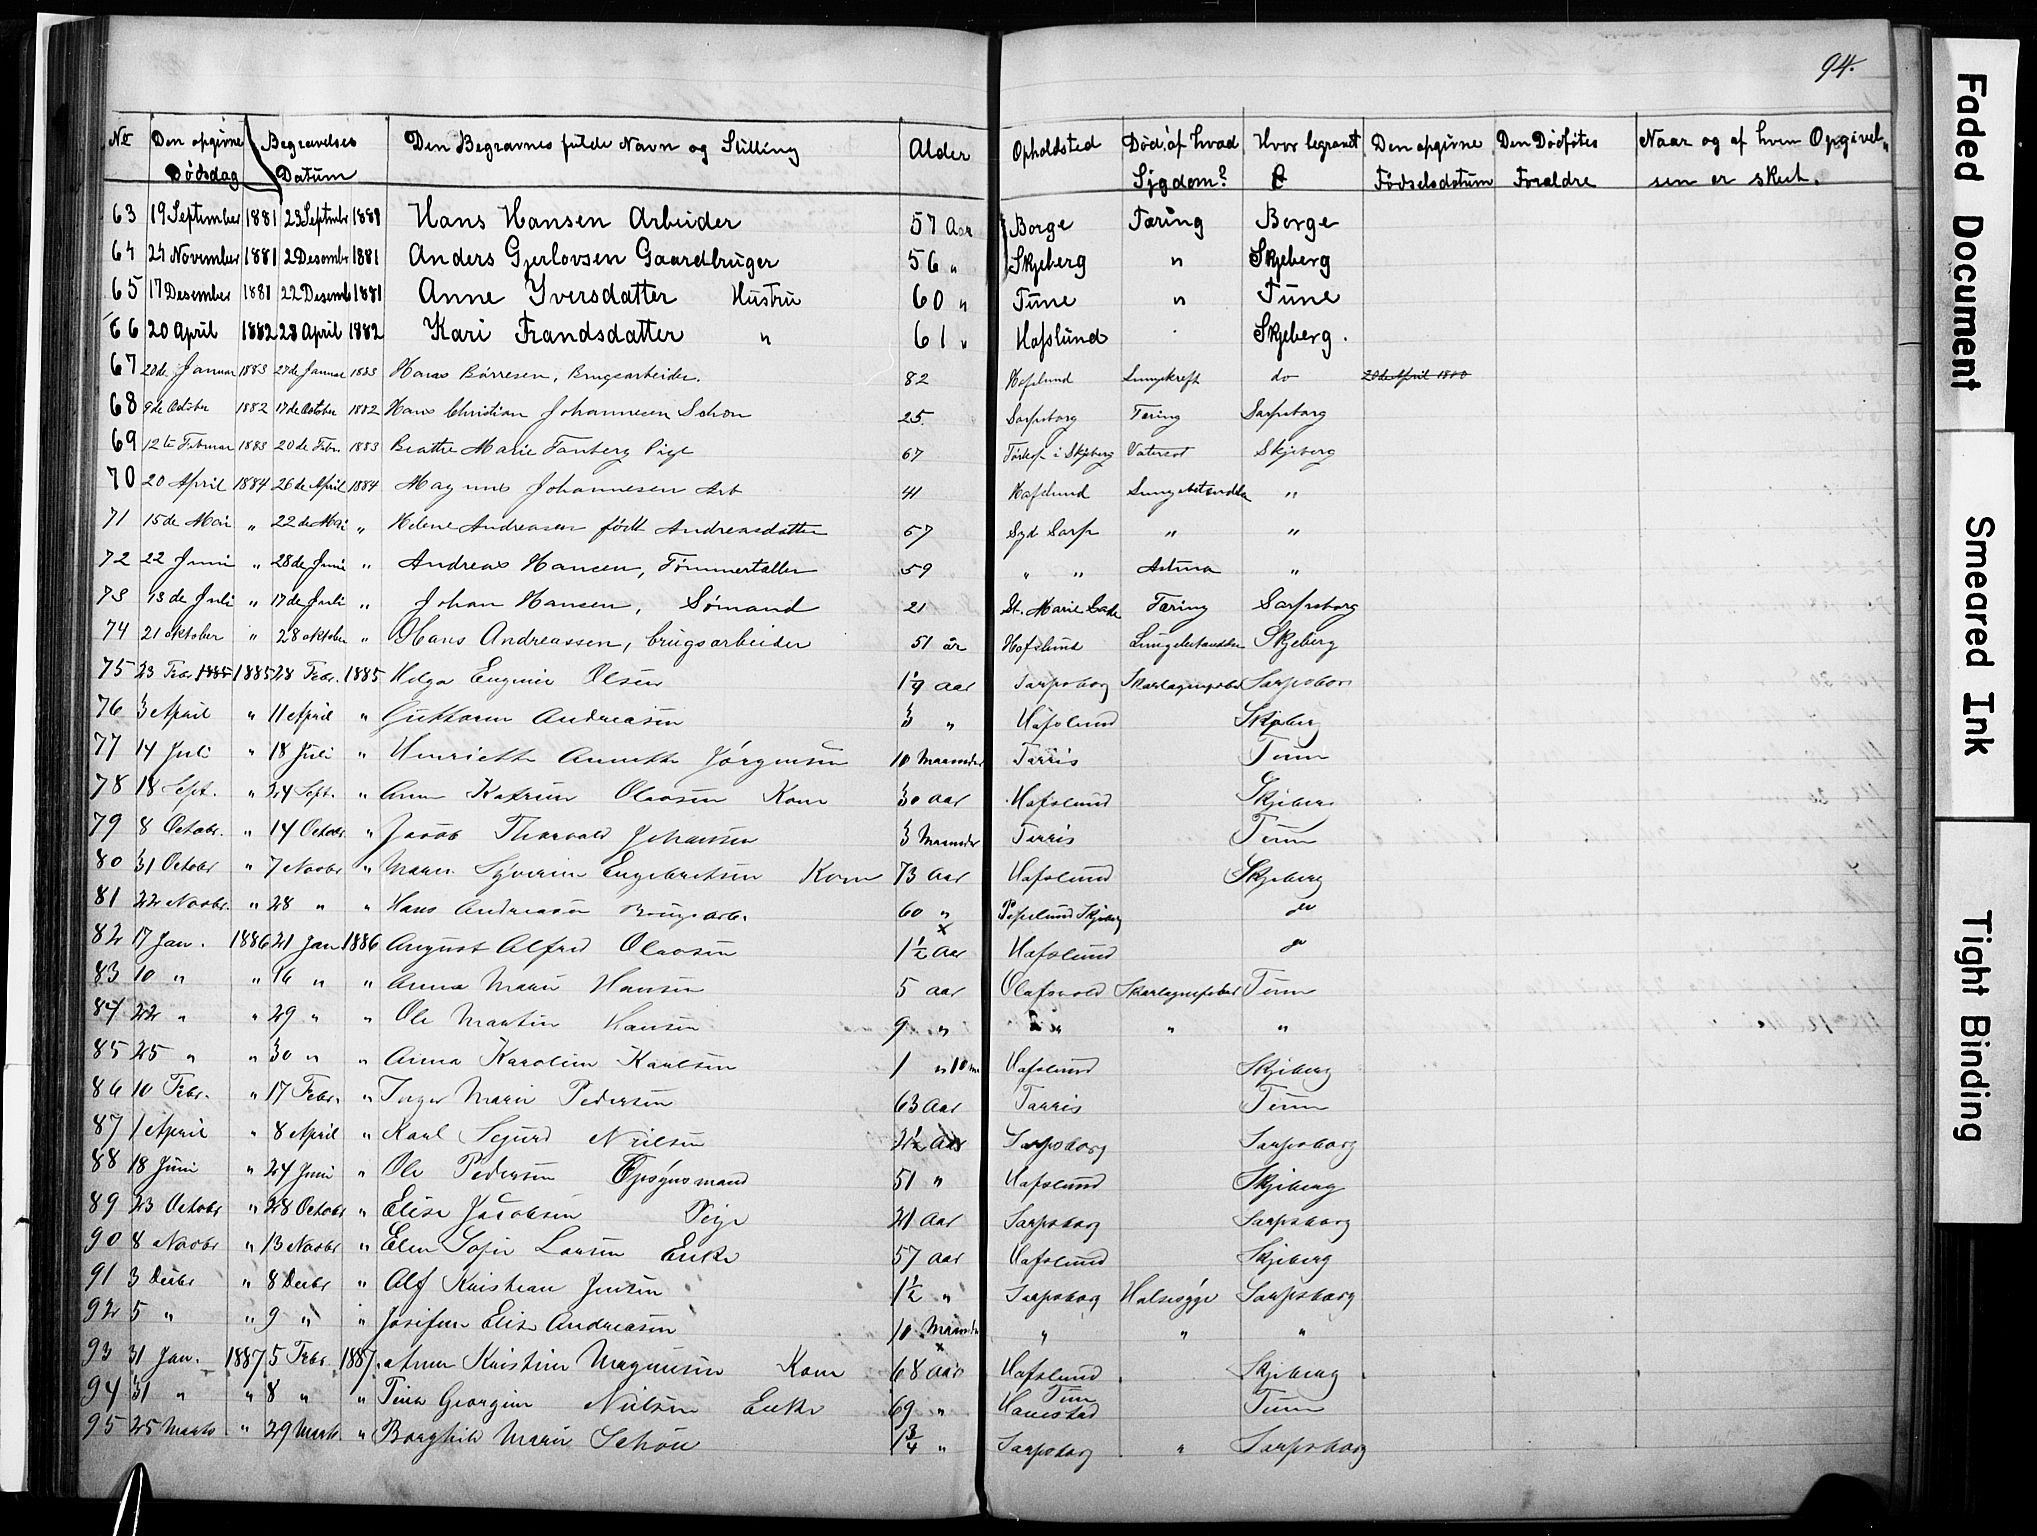 94.
No Den opgivne Dødsdag Begravelses Datum Den Begravnes fulde Navn og Stilling Alder Opholdsted Død, af hvad Sygdom? Hvor begravet Den opgivne Fødselsdatum Den Dødfötes Forældre Naar og af hvem Opgivel„sen er skeet.
63 19 September 1881 23 Septmbr 1881 Hans Hansen Arbeider 57 Aar Borge Tæring Borge
64 24 November 1881 2 Desembr 1881 Anders Gjerlovsen Gaardbruger 56 „ Skjeberg „ Skjeberg
65 17 Desember 1881 22 Desemb 1881 Anne Yversdatter Hustru 60 „ Tune „ Tune
66 20 April 1882 28 April 1882 Kari Frandsdatter „ 61 „ Hafslund Skjeberg.
67 20de Januar 1883 27de Januar 1883 Hans Börresen, Brugsarbeider. 82 Hafslund do 20de April 1800
68 9de Octobr 1882 17de October 1882 Hans Christian Johannesen Schou 25. Sarpsborg Tæring Sarpsborg
69 12te Februar 1883 20de Febr. 1883 Beatte Marie Tanberg Pige 67 i Skjeberg Vatersot Skjeberg
70 20 April 1884 26de April 1884 Magnus Johannesen Arb 41 Hafslund Lungebetændelse „
71 15de Mai „ 22de Mai „ Helene Andreasen födt Andreasdatter 57 Syd Sarp „ „
72 22 Juni „ 28de Juni „ Andreas Hansen, Tømmertæller 59 „ „ Astma „
73 13de Juli „ 17de Juli „ Johan Hansen, Sømand 21 St. Marie Gade Tæring Sarpsborg
74 21 oktober „ 28 oktober „ Hans Andreassen, brugsarbeider 51 år Hafslund Lungebetændelse Skjeberg
75 23 Febr 1885 1885 28 Febr. 1885 Helga Eugenie Olsen 1 1/9 Aar Sarpsborg Skarlagensfeber Sarpsborg
76 3 April „ 11 April „ Guttorm Andreasen 3 „ Hafslund Skjeberg
77 14 Juli „ 18 Juli „ Henriette Annette Jörgensen 10 Maaneder Tarris Tune
78 18 Sept. „ 24 Sept. „ Anne Katrine Olavsen Kone 30 Aar Hafslund Skjeberg
79 8 Octobr. „ 14 Octobr. „ Jacob Thorvald Johansen 3 Maaneder Tarris Tune
80 31 Octobr „ 7 Novbr „ Maren Syverine Engebretsen Kone 73 Aar Hafslund Skjeberg
81 22 Novbr. „ 28 „ „ Hans Andreasen Brugsarb. 60 „ Skjeberg do
82 17 Jan. 1886 21 Jan 1886 August Alfred Olavsen 1 1/2 Aar Hafslund do
83 10 „ „ 16 „ „ Anna Marie Hansen 5 Aar Olafsvold Skarlagensfeber Tune
84 22 „ „ 29 „ „ Ole Martin Hansen 9 „ „ „ „
85 25 „ „ 30 „ „ Anna Karoline Karlsen 1 „ 10 m Hafslund Skjeberg
86 10 Febr. „ 17 Febr. „ Inger Marie Pedersen 63 Aar Tarris Tune
87 1 April „ 8 April „ Karl Sigurd Nielsen 2 1/2 Aar Sarpsborg Sarpsborg
88 18 Juni „ 24 Juni „ Ole Pedersen Opsynsmand 51 „ Hafslund Skjeberg
89 23 Octobr „ 28 Octobr „ Elise Jacobsen Pige 21 Aar Sarpsborg Sarpsborg
90 8 Novbr „ 13 Novbr „ Elen Sofie Larsen Enke 57 Aar Hafslund Skjeberg
91 3 Decbr „ 8 Decbr „ Alf Kristian Jensen 1 1/2 „ Sarpsborg Halssyge Sarpsborg
92 5 „ „ 9 „ „ Josefine Elise Andreasen 10 Maaneder „ „ „
93 31 Jan. 1887 5 Febr. 1887 Anne Kristine Magnusen Kone 68 Aar Hafslund Skjeberg
94 31 „ „ 8 „ „ Tina Georgine Nielsen Enke 69 „ Hannestad Tune Tune
95 25 Marts „ 29 Marts „ Borghild Marie Schou 1 3/4 „ Sarpsborg „ Sarpsborg
Faded Document
Smeared Ink
Tight Binding